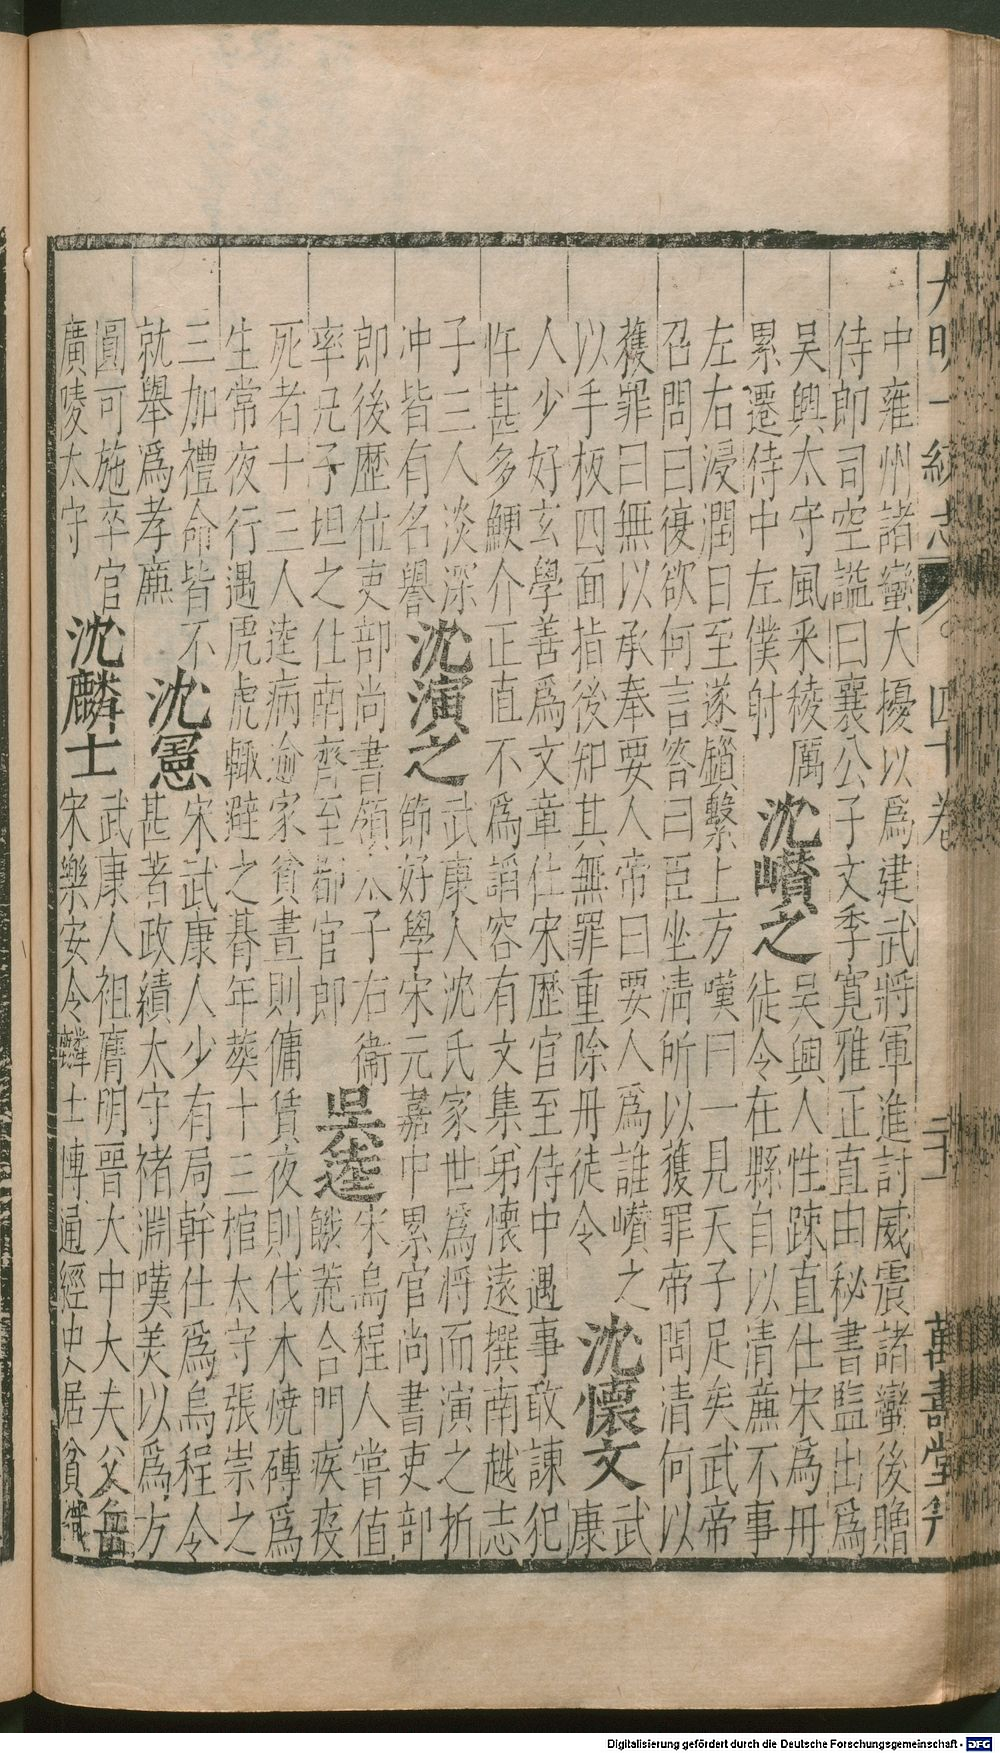 大明一統志 四十卷 二十一 萬壽堂刊
中雍州諸蠻大擾以為建武將軍進討威震諸蠻後贈
侍郎司空謚曰襄公子文季寛雅正直由秘書監出為
吳興太守風釆稜厲
累遷侍中左僕射
沈巑之
吳興人性踈直仕宋為丹
徒令在縣自以清亷不事
左右浸潤日至遂鎻繫上方嘆曰一見天子足矣武帝
召問曰復欲何言答曰臣坐清所以獲罪帝問清何以
獲罪曰無以承奉要人帝曰要人為誰巑之
以手板四面指後知其無罪重除丹徒令
沈懷文
武
康
人少好玄學善為文章仕宋歷官至侍中遇事敢諫犯
忤甚多鯁介正直不為謟容有文集弟懷遠撰南越志
子三人淡深
冲皆有名譽
沈演之
武康人沈氏家世為將而演之折
節好學宋元嘉中累官尚書吏部
郎後歷位吏部尚書領太子右衞
率兄子坦之仕南齊至都官郎
吳逵
宋烏程人嘗值
饑荒合門疾疫
死者十三人逵病逾家貧晝則傭賃夜則伐木燒磚為
生常夜行遇虎虎輙避之朞年葬十三棺太守張崇之
三加禮命皆不
就舉為孝亷
沈憲
宋武康人少有局幹仕為烏程令
甚著政績太守褚淵嘆美以為方
圓可施卒官
廣陵太守
沈麟士
武康人祖膺明晉大中大夫父岳
宋樂安令麟士博通經史居貧織
Digitalisierung gefördert durch die Deutsche Forschungsgemeinschaft - DFG